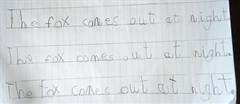 The fox comes out at night.
The fox comes out at night.
The fox comes out at night.